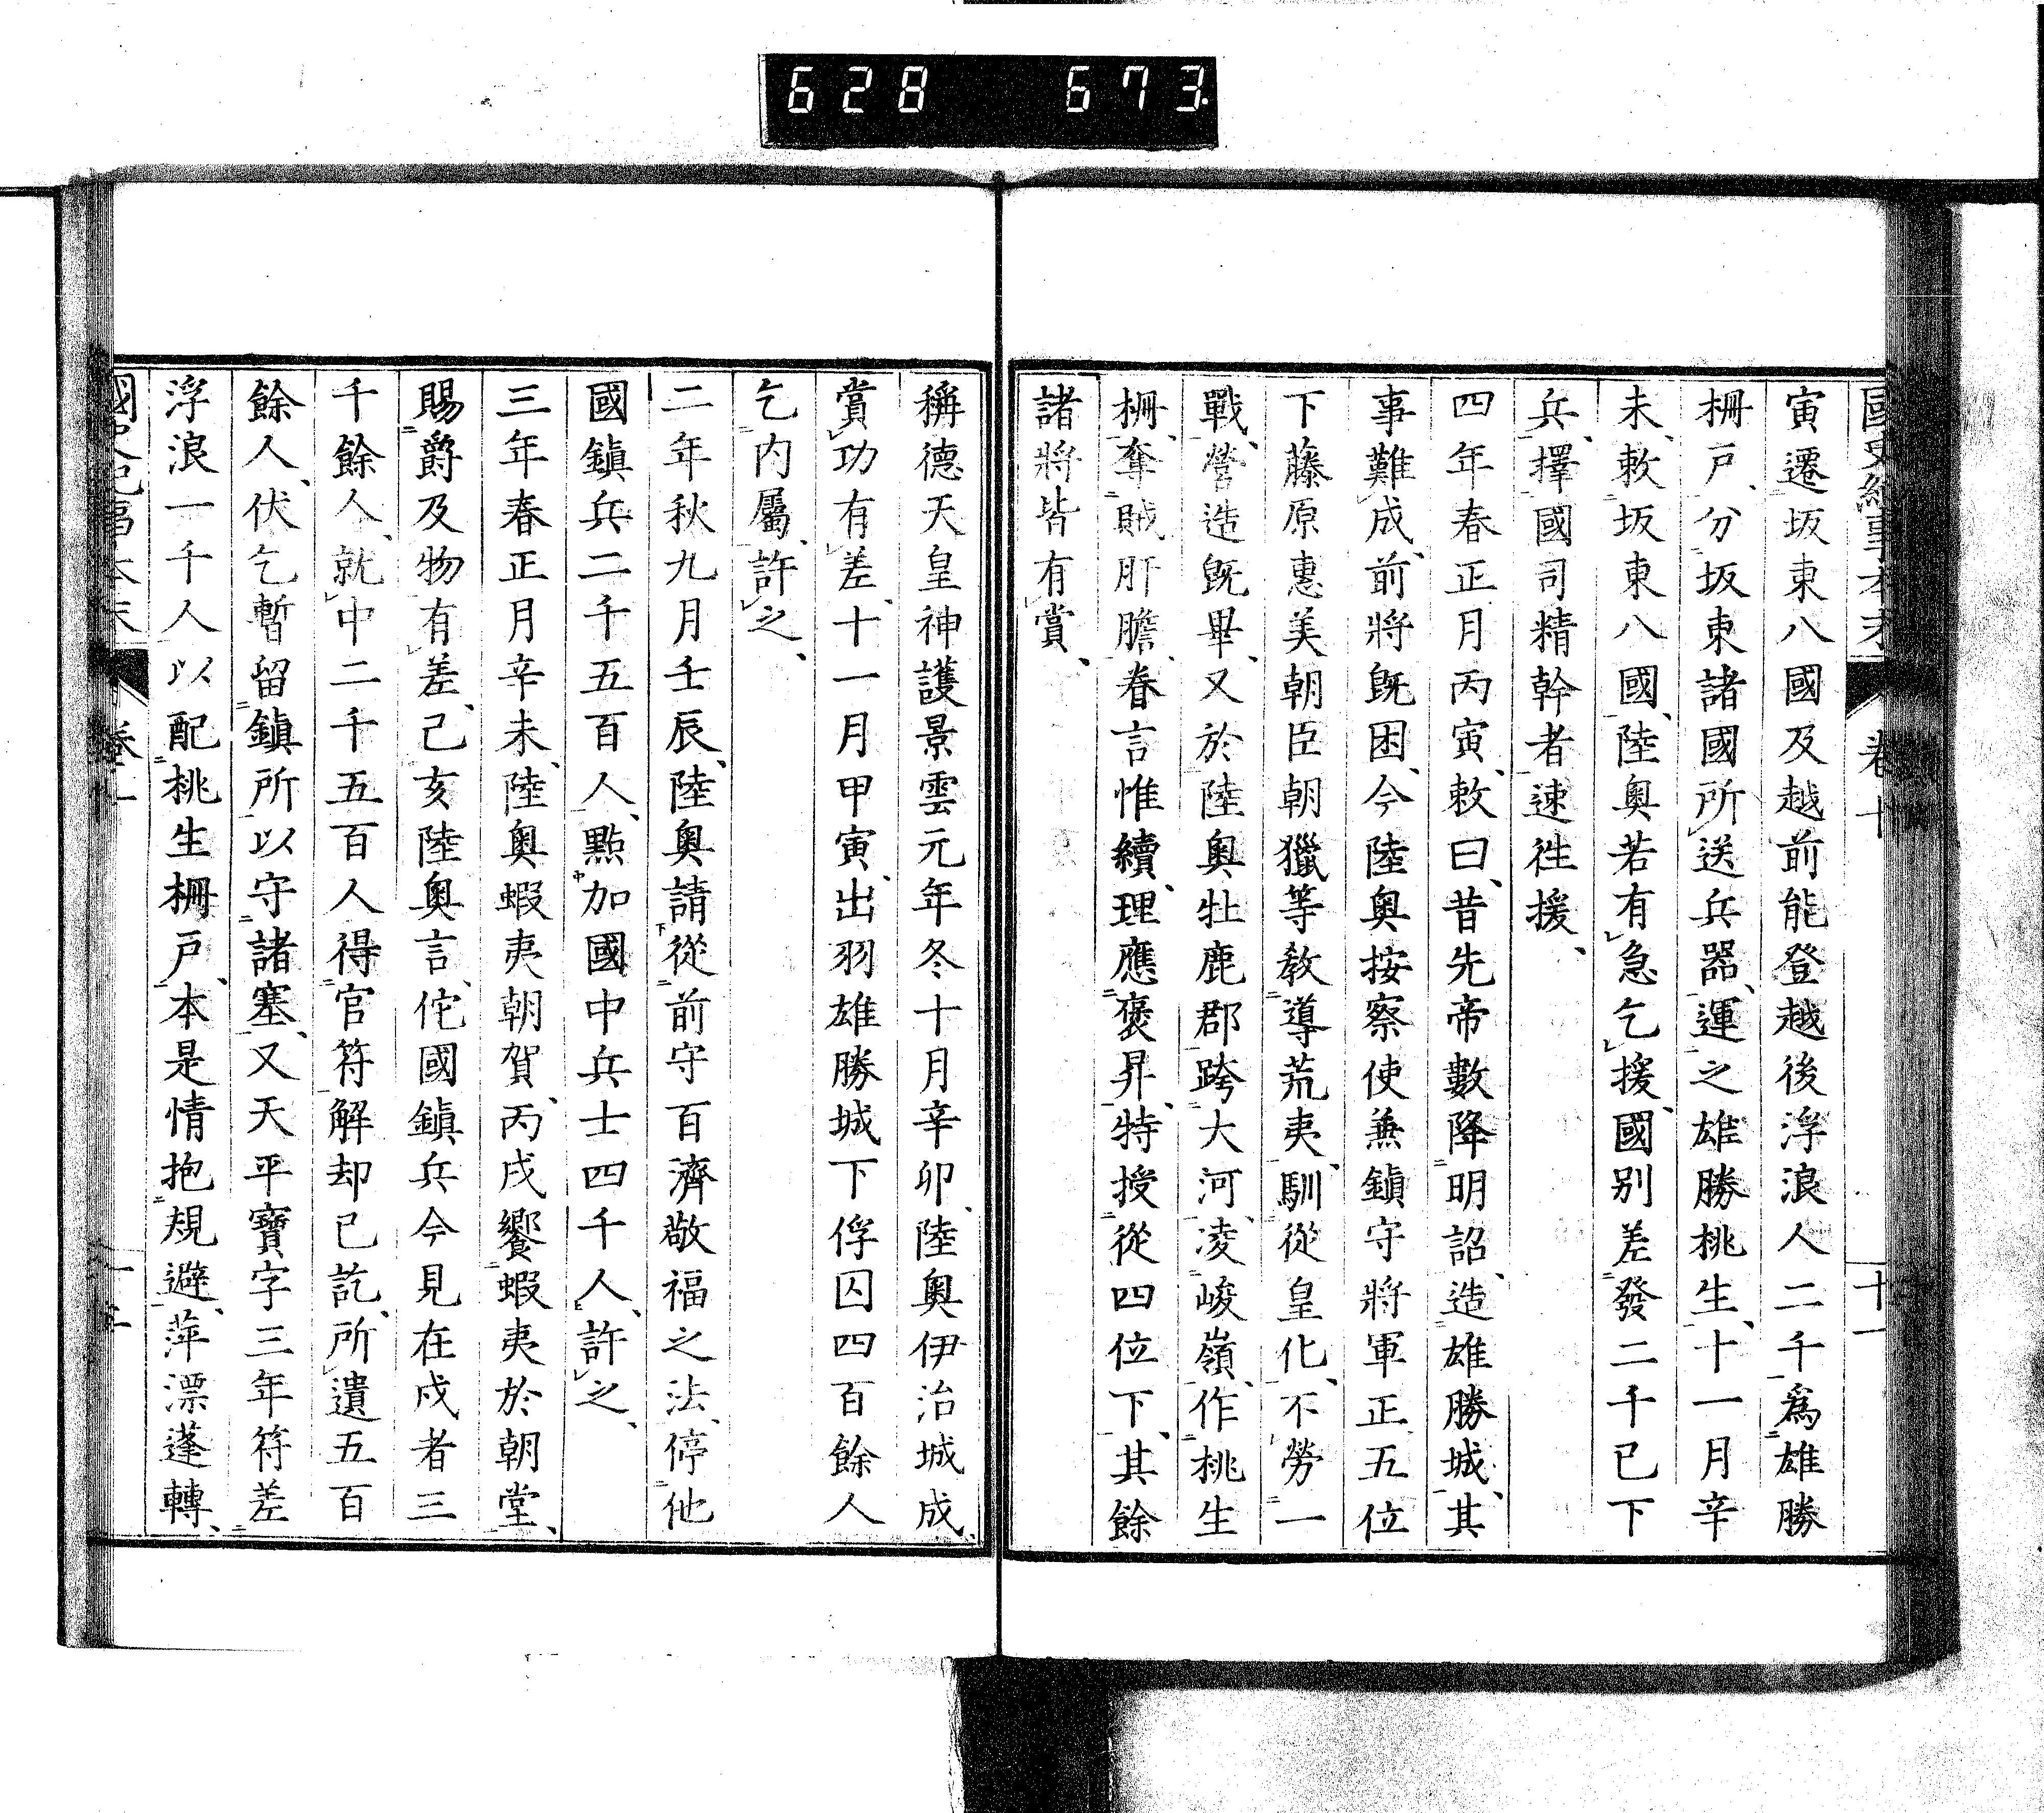 628 673.
國史紀事本末 卷十 十一
寅遷坂東八國及越前能登越後浮浪人二千爲雄勝
柵戶、分坂東諸國所送兵器、運之雄勝桃生、十一月辛
未、敕坂東八國、陸奧若有急乞援、國別差發二千已下
兵、擇國司精幹者速徃援、
四年春正月丙寅、敕曰、昔先帝數降明詔、造雄勝城、其
事難成、前將既困、今陸奧按察使兼鎭守將軍正五位
下藤原惠美朝臣朝獵等教導荒夷、馴從皇化、不勞一
戰、營造既畢、又於陸奧牡鹿郡、跨大河、凌峻嶺、作桃生
柵、奪賊肝膽、眷言惟續、理應褒昇、特授從四位下、其餘
諸將皆有賞、
稱德天皇神護景雲元年冬十月辛卯、陸奧伊治城成、
賞功有差、十一月甲寅、出羽雄勝城下俘囚四百餘人
乞內屬、許之、
二年秋九月壬辰、陸奧請從前守百濟敬福之法、停他
國鎭兵二千五百人、點加國中兵士四千人、許之、
三年春正月辛未、陸奧蝦夷朝賀、丙戌饗蝦夷於朝堂、
賜爵及物有差、己亥陸奧言、佗國鎭兵今見在戍者三
千餘人、就中二千五百人得官符解却已訖、所遺五百
餘人、伏乞暫留鎭所以守諸塞、又天平寶字三年符差
浮浪一千人以配桃生柵戶、本是情抱規避、萍漂蓬轉、
國史紀事本末